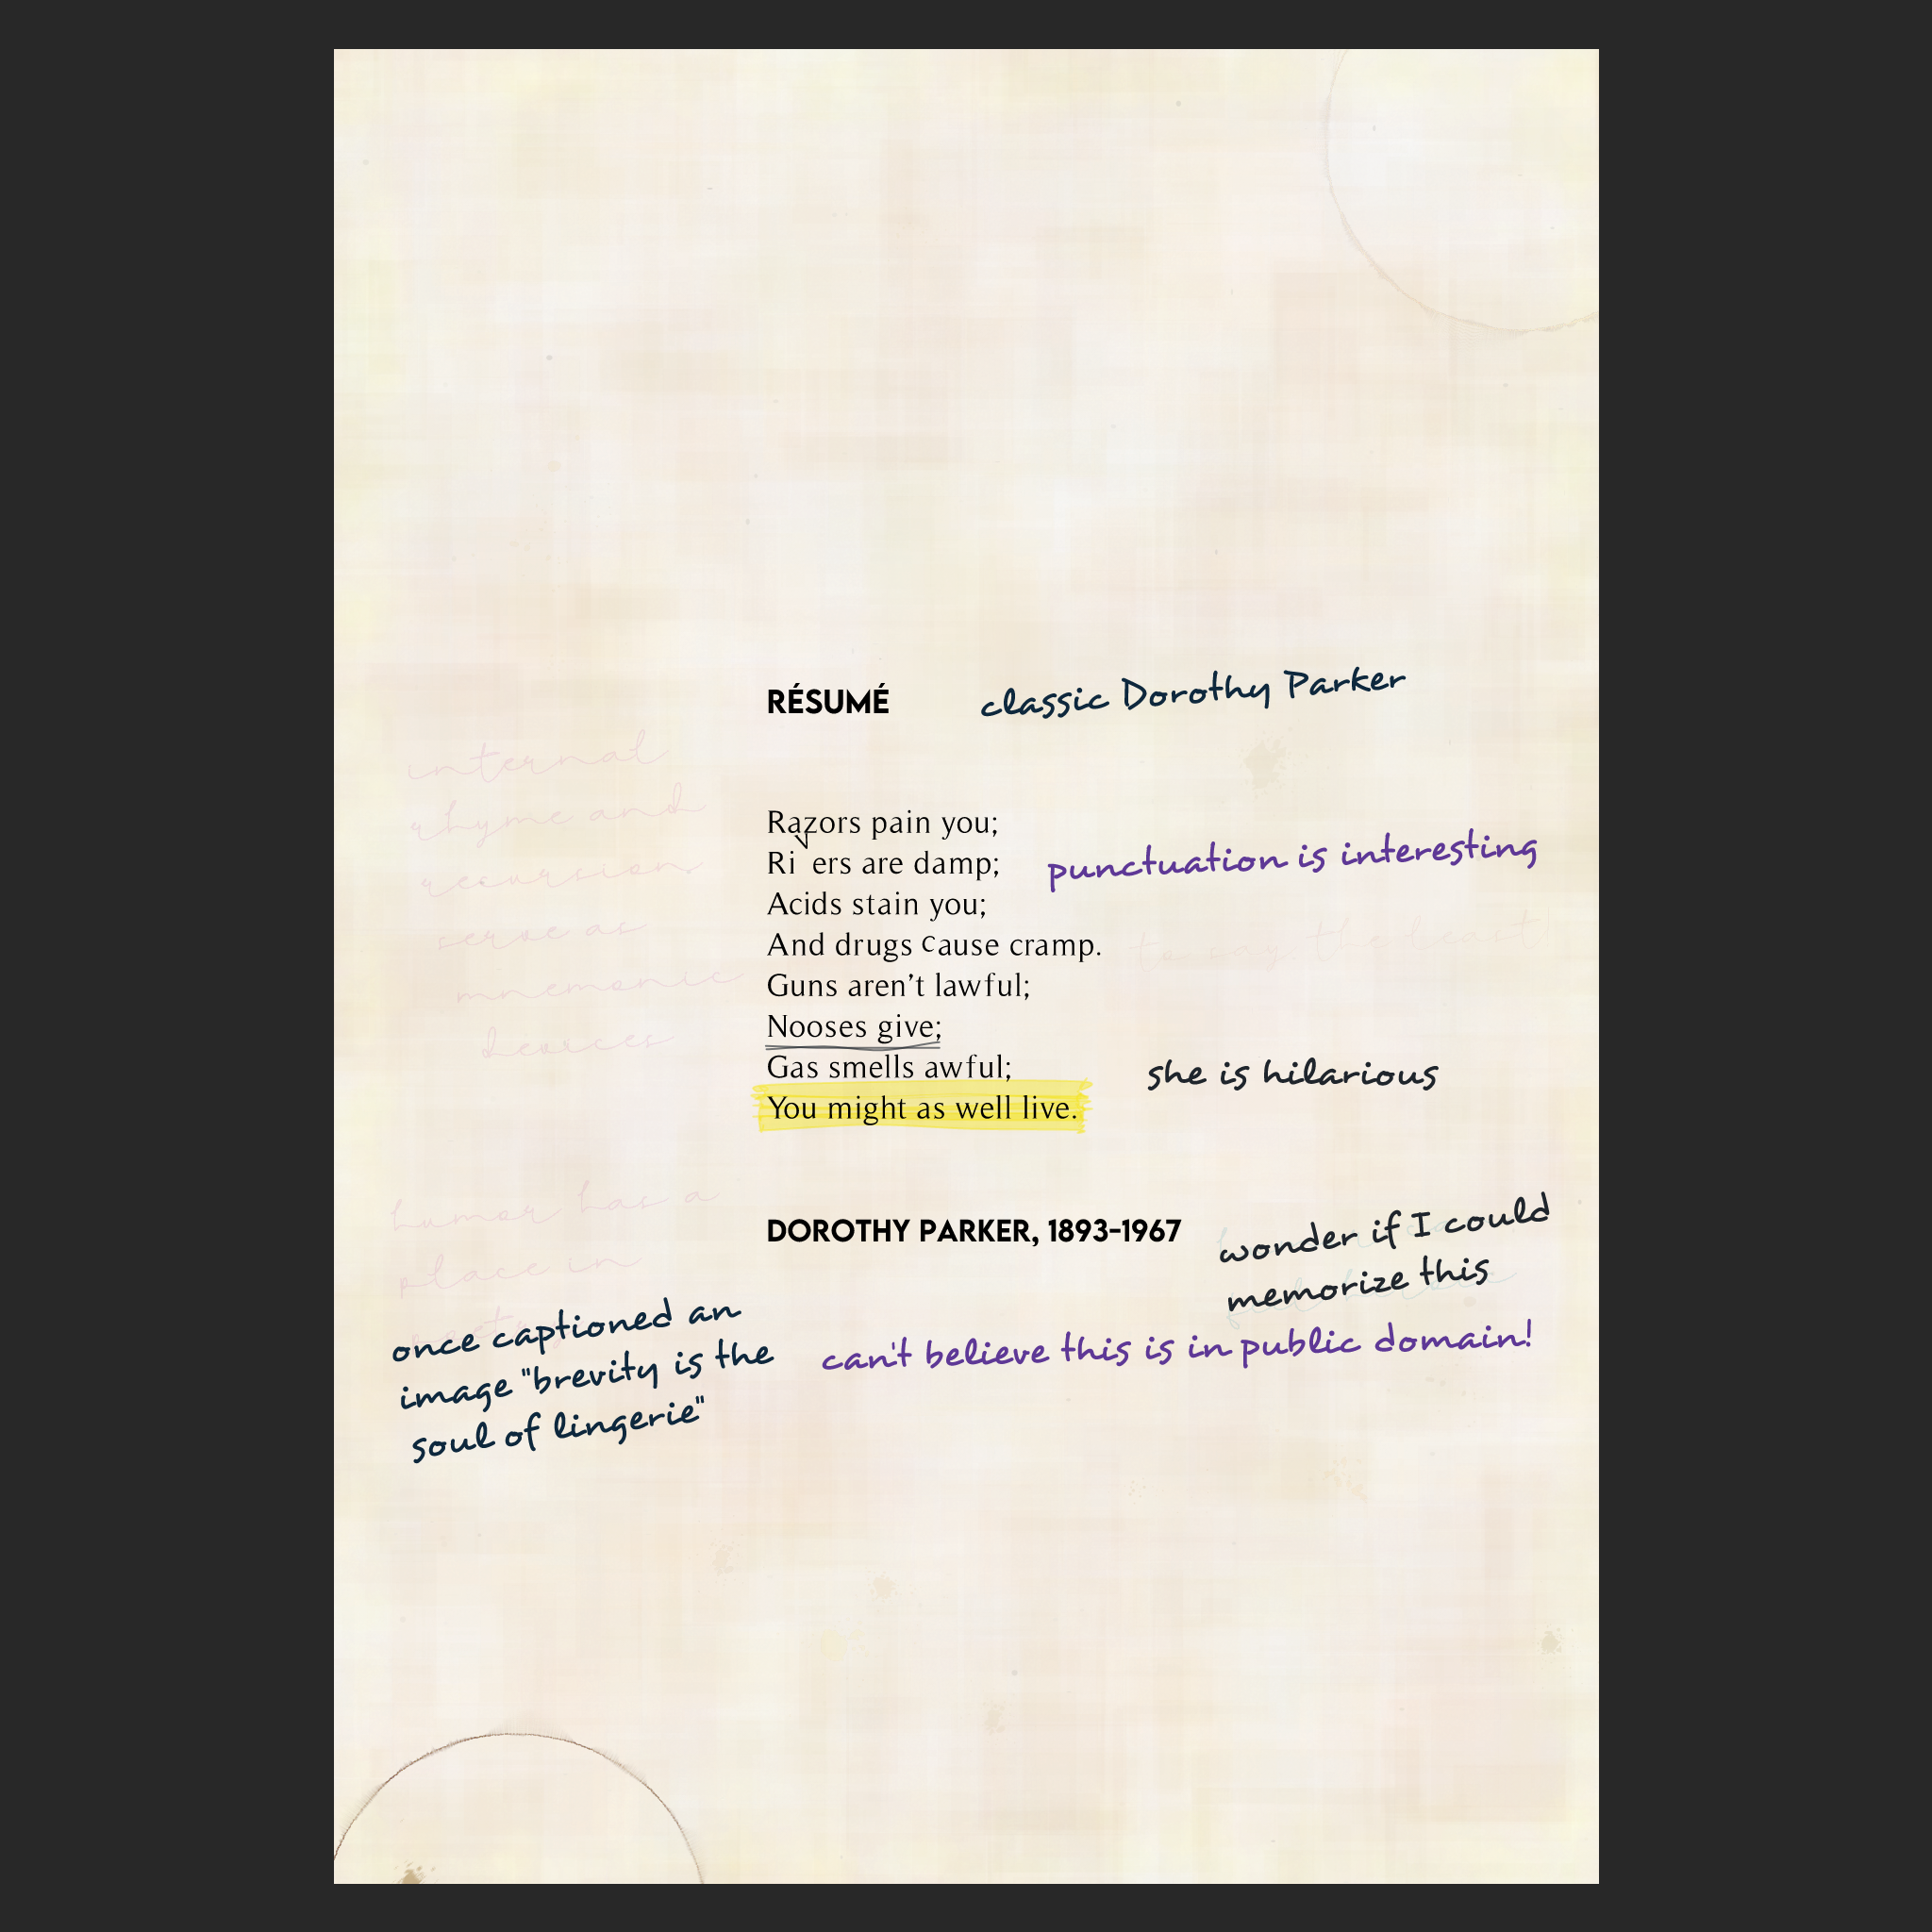 RÉSUMÉ
classic Dorothy Parker
internal
rhyme and
recursion
serve as
mnemonic
devices
Razors pain you;
Rivers are damp;
punctuation is interesting
Acids stain you;
And drugs cause cramp.
to say the least
Guns aren’t lawful;
Nooses give;
Gas smells awful;
she is hilarious
You might as well live.
humor has a
place in
poetry
DOROTHY PARKER, 1893–1967
wonder if I could
memorize this
once captioned an
image "brevity is the
soul of lingerie"
can't believe this is in public domain!